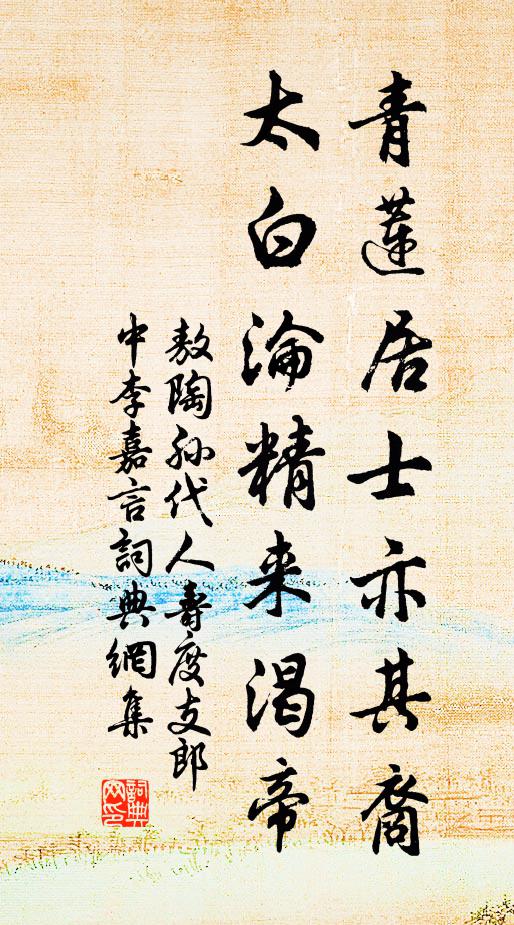 青蓮居士亦其裔
太白淪精来渴帝
敖陶孙代人壽度支郎
中李嘉言詞典網集
詞典
网印